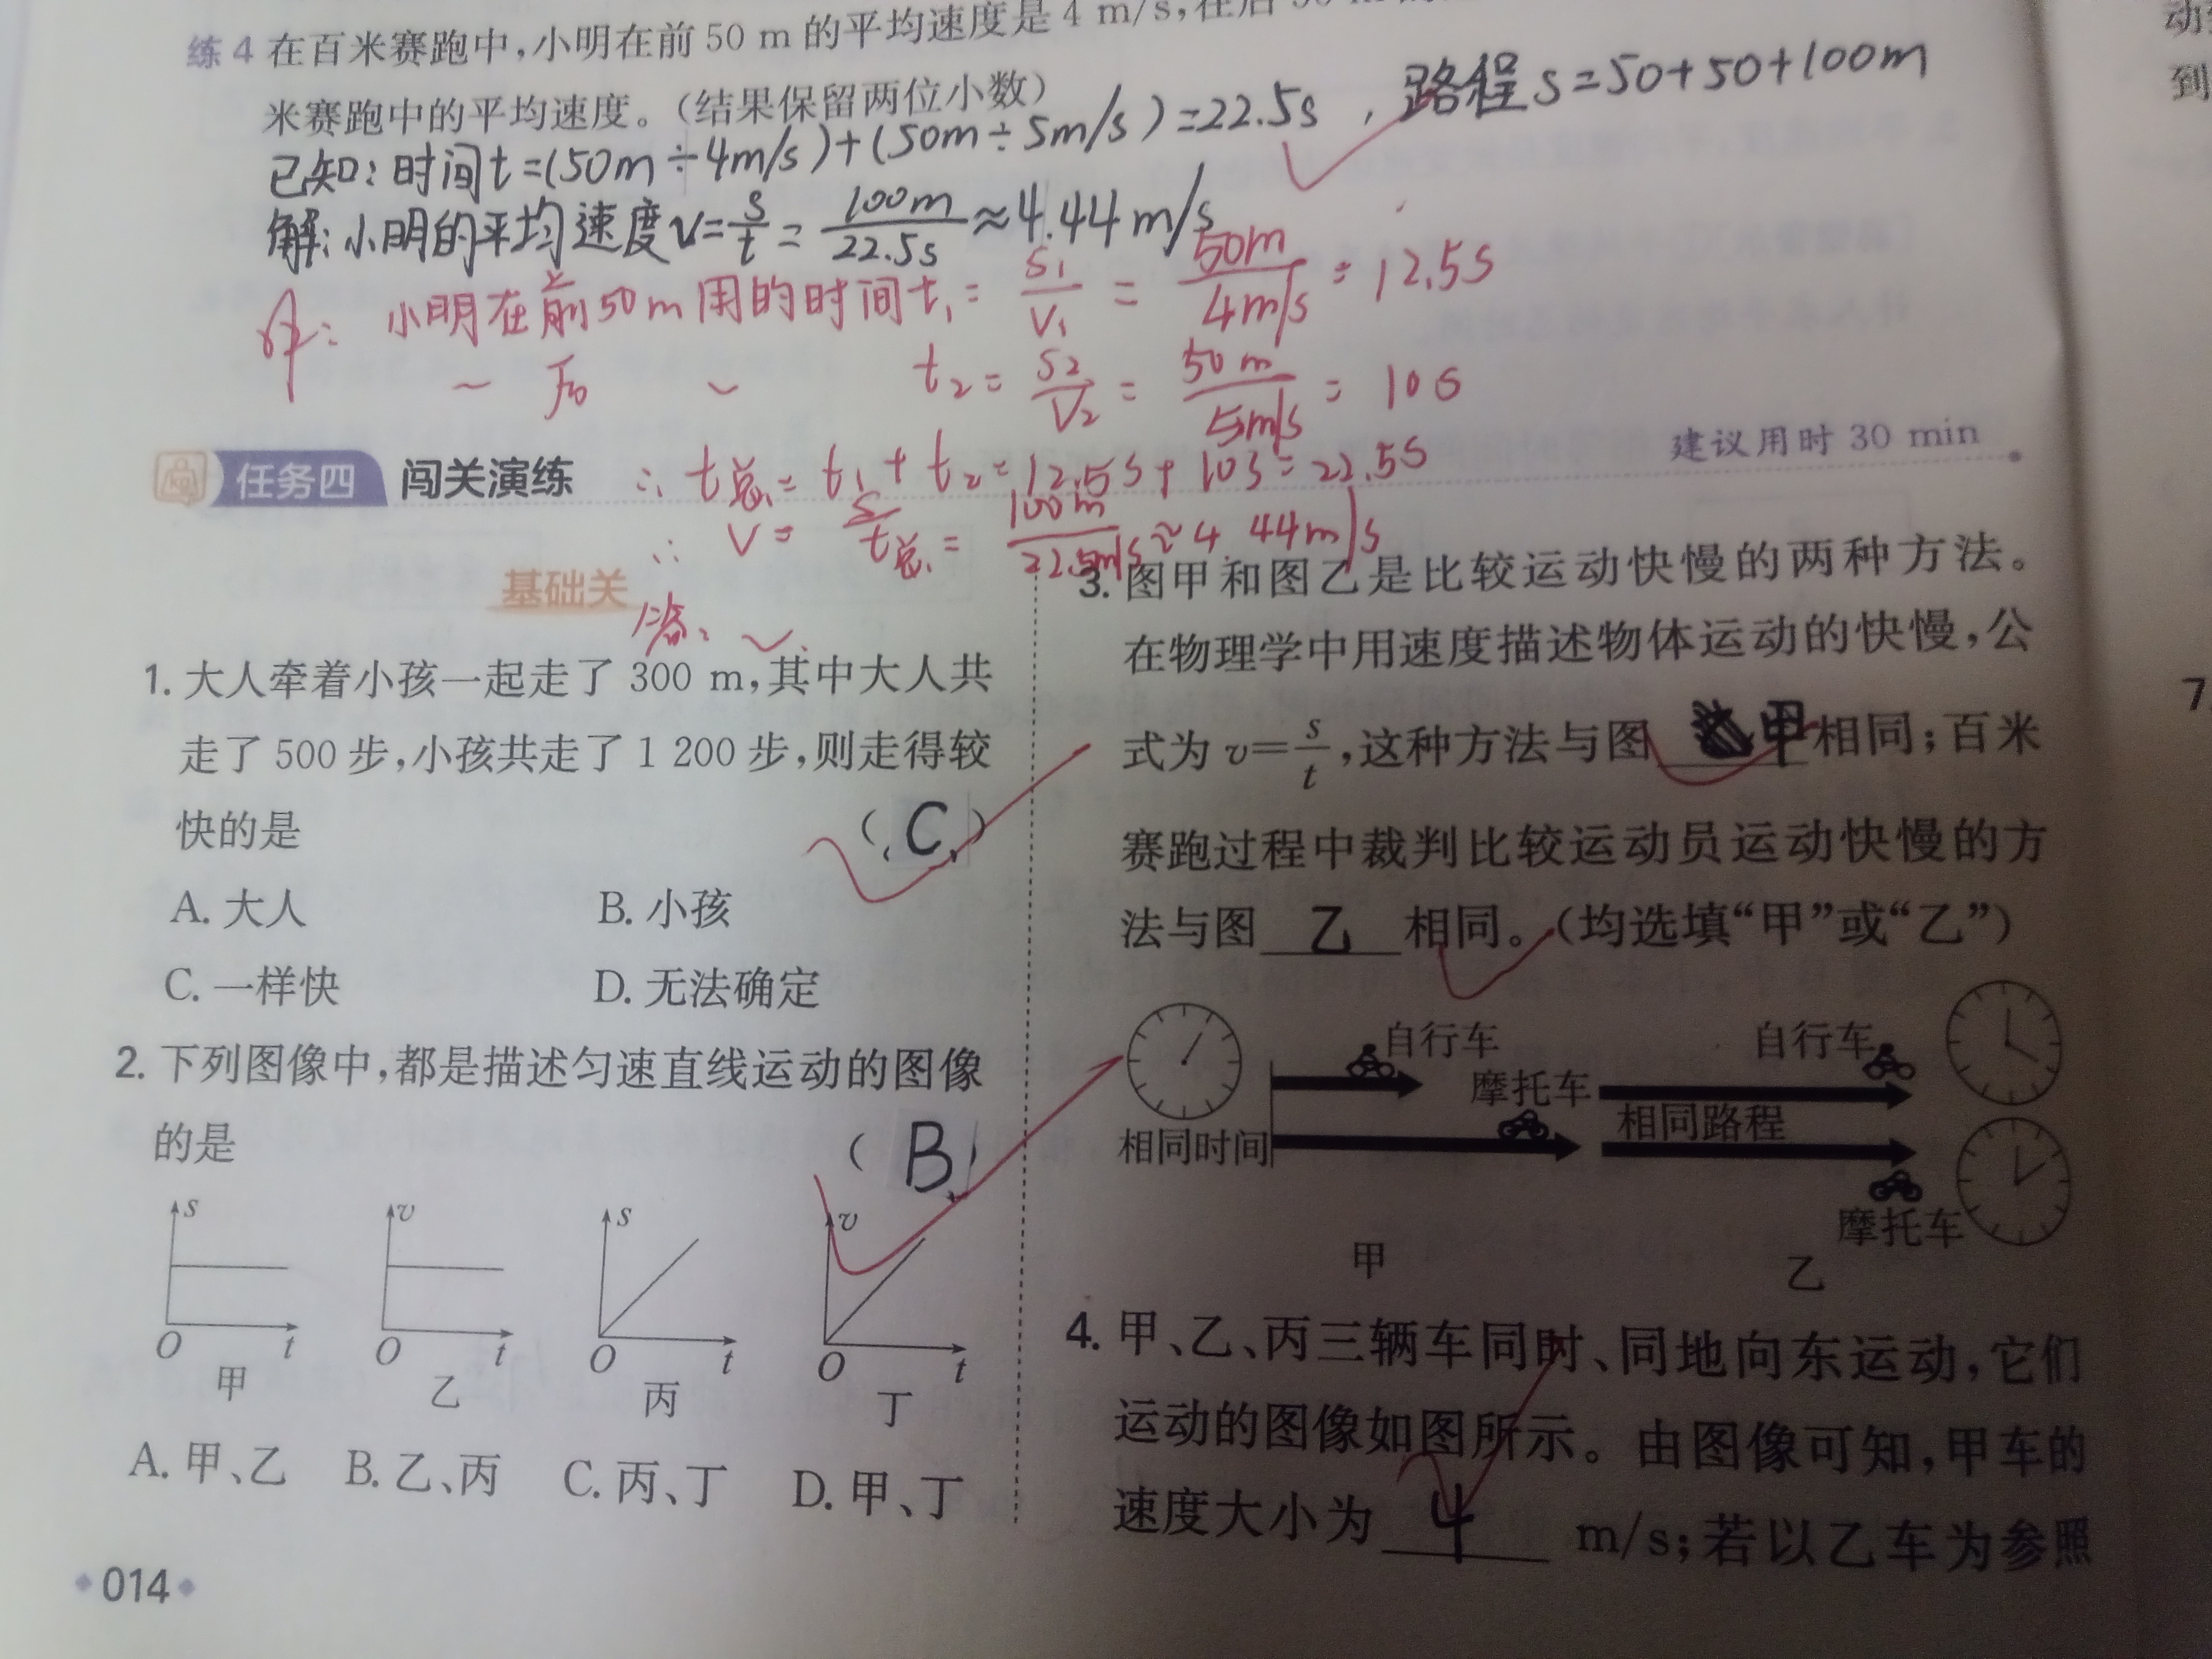 练4 在百米赛跑中,小明在前50 m的平均速度是4 m/s,在后
米赛跑中的平均速度。(结果保留两位小数)
已知:时间t=(50m÷4m/s)+(50m÷5m/s)=22.5s ,路程s=50+50+100m
解:小明的平均速度v=s/t=100m/22.5s≈4.44m/s
小明在前50m用的时间t₁=s₁/v₁=50m/4m/s=12.5s
~ 后 ~ t₂=s₂/v₂=50m/5m/s=10s
∴ t总=t₁+t₂=12.5s+10s=22.5s
∴ v=s/t总=100m/22.5m/s≈4.44m/s
答:
任务四 闯关演练
建议用时30 min
基础关
1. 大人牵着小孩一起走了300 m,其中大人共
走了500步,小孩共走了1 200步,则走得较
快的是 (C)
A. 大人 B. 小孩
C. 一样快 D. 无法确定
2. 下列图像中,都是描述匀速直线运动的图像
的是 (B)
s v s v
O t O t O t O t
甲 乙 丙 丁
A. 甲、乙 B. 乙、丙 C. 丙、丁 D. 甲、丁
014
3. 图甲和图乙是比较运动快慢的两种方法。
在物理学中用速度描述物体运动的快慢,公
式为v=s/t,这种方法与图 甲 相同;百米
赛跑过程中裁判比较运动员运动快慢的方
法与图 乙 相同。(均选填“甲”或“乙”)
自行车 自行车
摩托车
相同时间 相同路程
摩托车
甲 乙
4. 甲、乙、丙三辆车同时、同地向东运动,它们
运动的图像如图所示。由图像可知,甲车的
速度大小为 4 m/s;若以乙车为参照
动
到
7